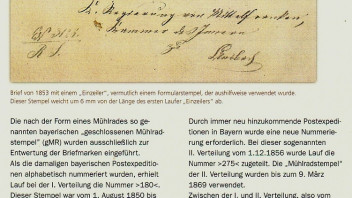 K. Regierung von Mittelfranken,
Kammer d. Innern
Ansbach
R. S.
Brief von 1853 mit einem „Einzeiler", vermutlich einem Formularstempel, der aushilfsweise verwendet wurde.
Dieser Stempel weicht um 6 mm von der Länge des ersten Laufer „Einzeilers" ab.
Die nach der Form eines Mühlrades so ge-
nannten bayerischen „geschlossenen Mühlrad-
stempel" (gMR) wurden ausschließlich zur
Entwertung der Briefmarken eingeführt.
Als die damaligen bayerischen Postexpeditio-
nen alphabetisch nummeriert wurden, erhielt
Lauf bei der I. Verteilung die Nummer >180<.
Dieser Stempel war vom 1. August 1850 bis
Durch immer neu hinzukommende Postexpedi-
tionen in Bayern wurde eine neue Nummerie-
rung erforderlich. Bei dieser sogenannten
II. Verteilung vom 1.12.1856 wurde Lauf die
Nummer >275< zugeteilt. Die „Mühlradstempel"
der II. Verteilung wurden bis zum 9. März
1869 verwendet.
Zwischen der I. und II. Verteilung, also vom